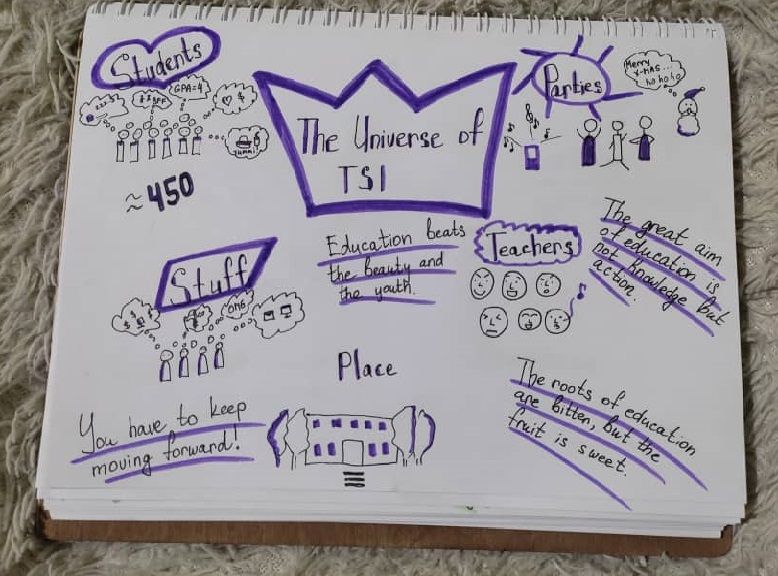 Students
zzz
BFF
GPA=4
YUMMI
≈ 450
The Universe of
TSI
Parties
Merry
X-MAS...
ho ho ho
Education beats
the beauty and
the youth.
Teachers
The great aim
of education is
not knowledge but
action.
Stuff
$ $
OMG
Place
You have to keep
moving forward!
The roots of education
are bitten, but the
fruit is sweet.